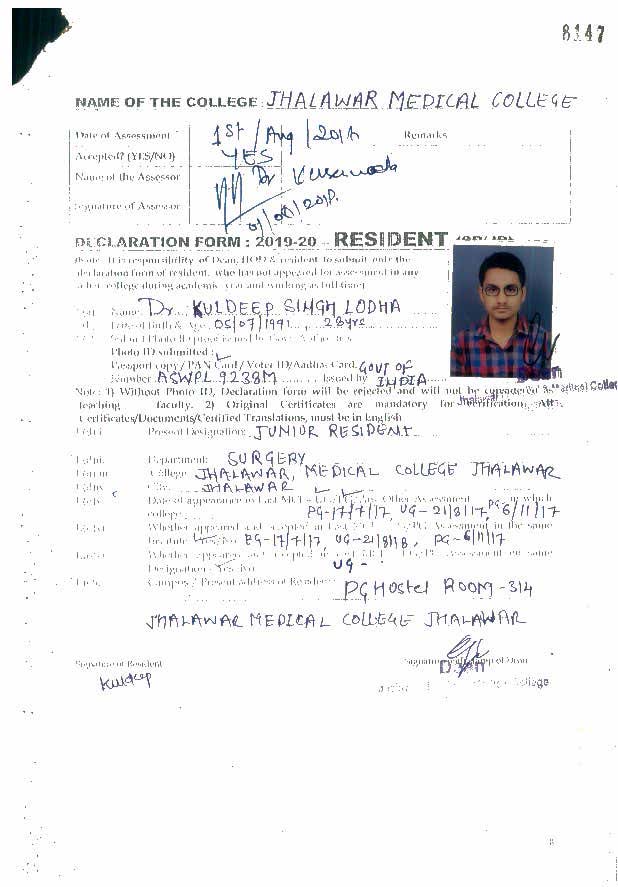 8147
NAME OF THE COLLEGE: JHALAWAR MEDICAL COLLEGE
Date of Assessment: 1st/Aug/201
Remarks
Accepted? (YES/NO) YES
Name of the Assessor Dr
Signature of Assessor
DECLARATION FORM : 2019-20 – RESIDENT
Note: It is responsibility of Dean, HOD & resident to submit only the
declaration form of resident, who has not appeared for assessment in any
other college during academic year and working as full time)
Name: Dr. KULDEEP SINGH LODHA
Date of Birth & Age: 05/07/1991 28yrs
Photo ID submitted :
Passport copy / PAN Card / Voter ID/Aadhar Card. GOVT OF
Number ASWPL 9238M Issued by INDIA
Note: 1) Without Photo ID, Declaration form will be rejected and will not be considered as
teaching faculty. 2) Original Certificates are mandatory for verification. All
Certificates/Documents/Certified Translations, must be in English
Present Designation: JUNIOR RESIDENT
Department: SURGERY
College: JHALAWAR, MEDICAL COLLEGE JHALAWAR
City: JHALAWAR
Date of appearance in Last MCI - UG/PG/Any Other Assessment in which
college: PG-17/7/17, UG-21/8/17, PG 6/11/17
Whether appeared and accepted in Last MCI UG/PG Assessment in the same
Institute Yes/No PG-17/7/17, UG-21/8/18, PG-6/11/17
Whether appeared and accepted in last MCI UG/PG Assessment on same
Designation: Yes/No UG -
Campus / Present address of Resident: PG Hostel ROOM-314
JHALAWAR MEDICAL COLLEGE JHALAWAR
Signature of Resident
Kuldeep
Signature of Dean
Dean
College